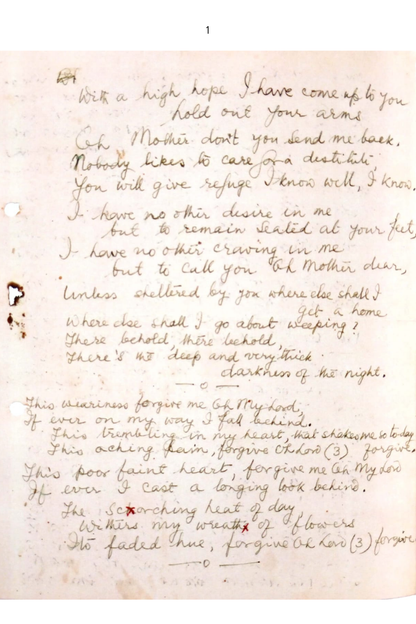 1
With a high hope I have come up to you
hold out your arms
Oh Mother don't you send me back.
Nobody likes to care for a distitute
You will give refuge I know well, I know.
I have no other desire in me
but to remain seated at your feet,
I have no other craving in me
but to call you Oh Mother dear,
Unless sheltered by you where else shall I
get a home
Where else shall I go about weeping?
There behold, there behold,
There's the deep and very thick
darkness of the night.
—o—
This weariness forgive me Oh My Lord,
If ever on my way I fall behind.
This trembling in my heart, that shakes me so today
This aching pain, forgive Oh Lord (3) forgive.
This poor faint heart, forgive me Oh My Lord
If ever I cast a longing look behind.
The scorching heat of day
Withers my wreath of flowers
Its faded hue, forgive Oh Lord (3) forgive
—o—